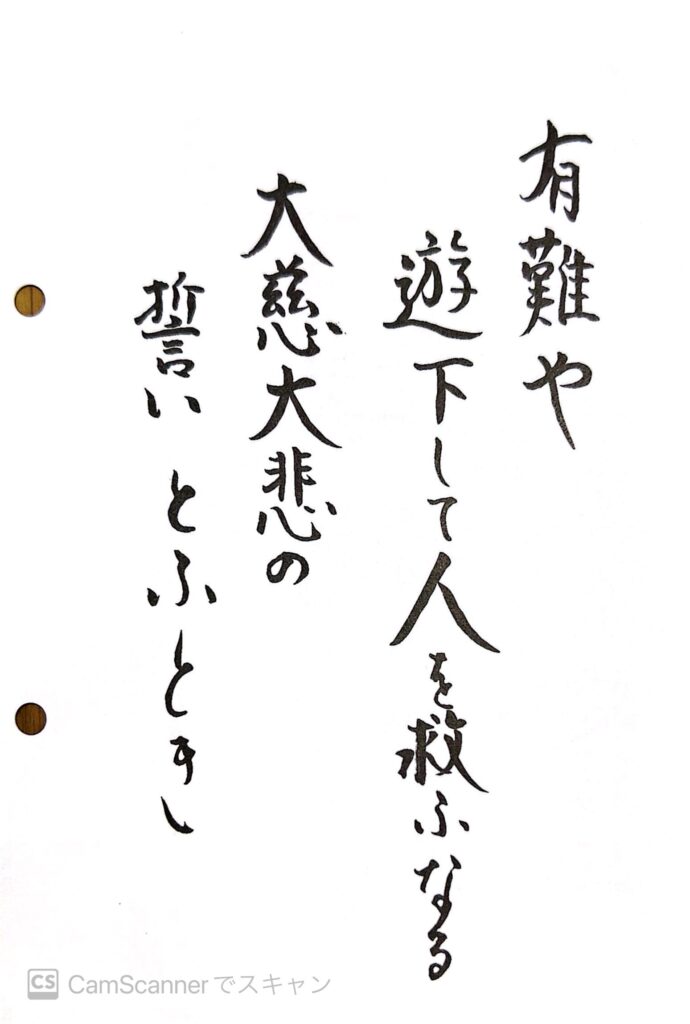 有難や
遊下して人を救ふなる
大慈大悲の
誓い とふときし
CS CamScannerでスキャン